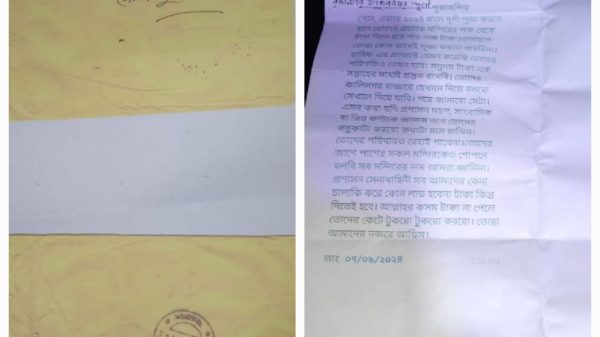 পূজামন্দির
শোন, এবারে ২০২৪ সালে দুর্গা পূজা করতে
হলে তোদের প্রত্যেক মন্দিরের পক্ষ থেকে
চাঁদা দিতে হবে পাঁচ লক্ষ টাকা।
তোরা কোন ভাবেই পূজা করতে পারবিনা।
পরিণতিও তেমন হবে। টাকা এক
সপ্তাহের মধ্যেই প্রস্তুত রাখবি। তোদের
কালিনগর বাজারে যেখানে দিতে বলবো
সেখানে দিয়ে যাবি। পরে জানাবো সেটা।
এসব কথা যদি প্রশাসন মহল, সাংবাদিক
বা ভিন্ন কাউকে জানাস তবে তোদের
কচুকাটা করবো কথাটা মনে রাখিস।
তোদের পরিবারও রেহাই পাবেনা। তোদের
আশে পাশের সকল মন্দিরকেও গোপনে
বলবি সব মন্দিরের নাম আমরা জানিনা।
প্রশাসন সেনাবাহিনী সব আমাদের কেনা
চালাকি করে কোন লাভ হবেনা টাকা কিন্তু
দিতেই হবে। আল্লাহর কসম টাকা না পেলে
তোদের কেটে টুকরো টুকরো করবো। তোরা
আমাদের নজরে আছিস।
তাং ০৭/০৯/২০২৪